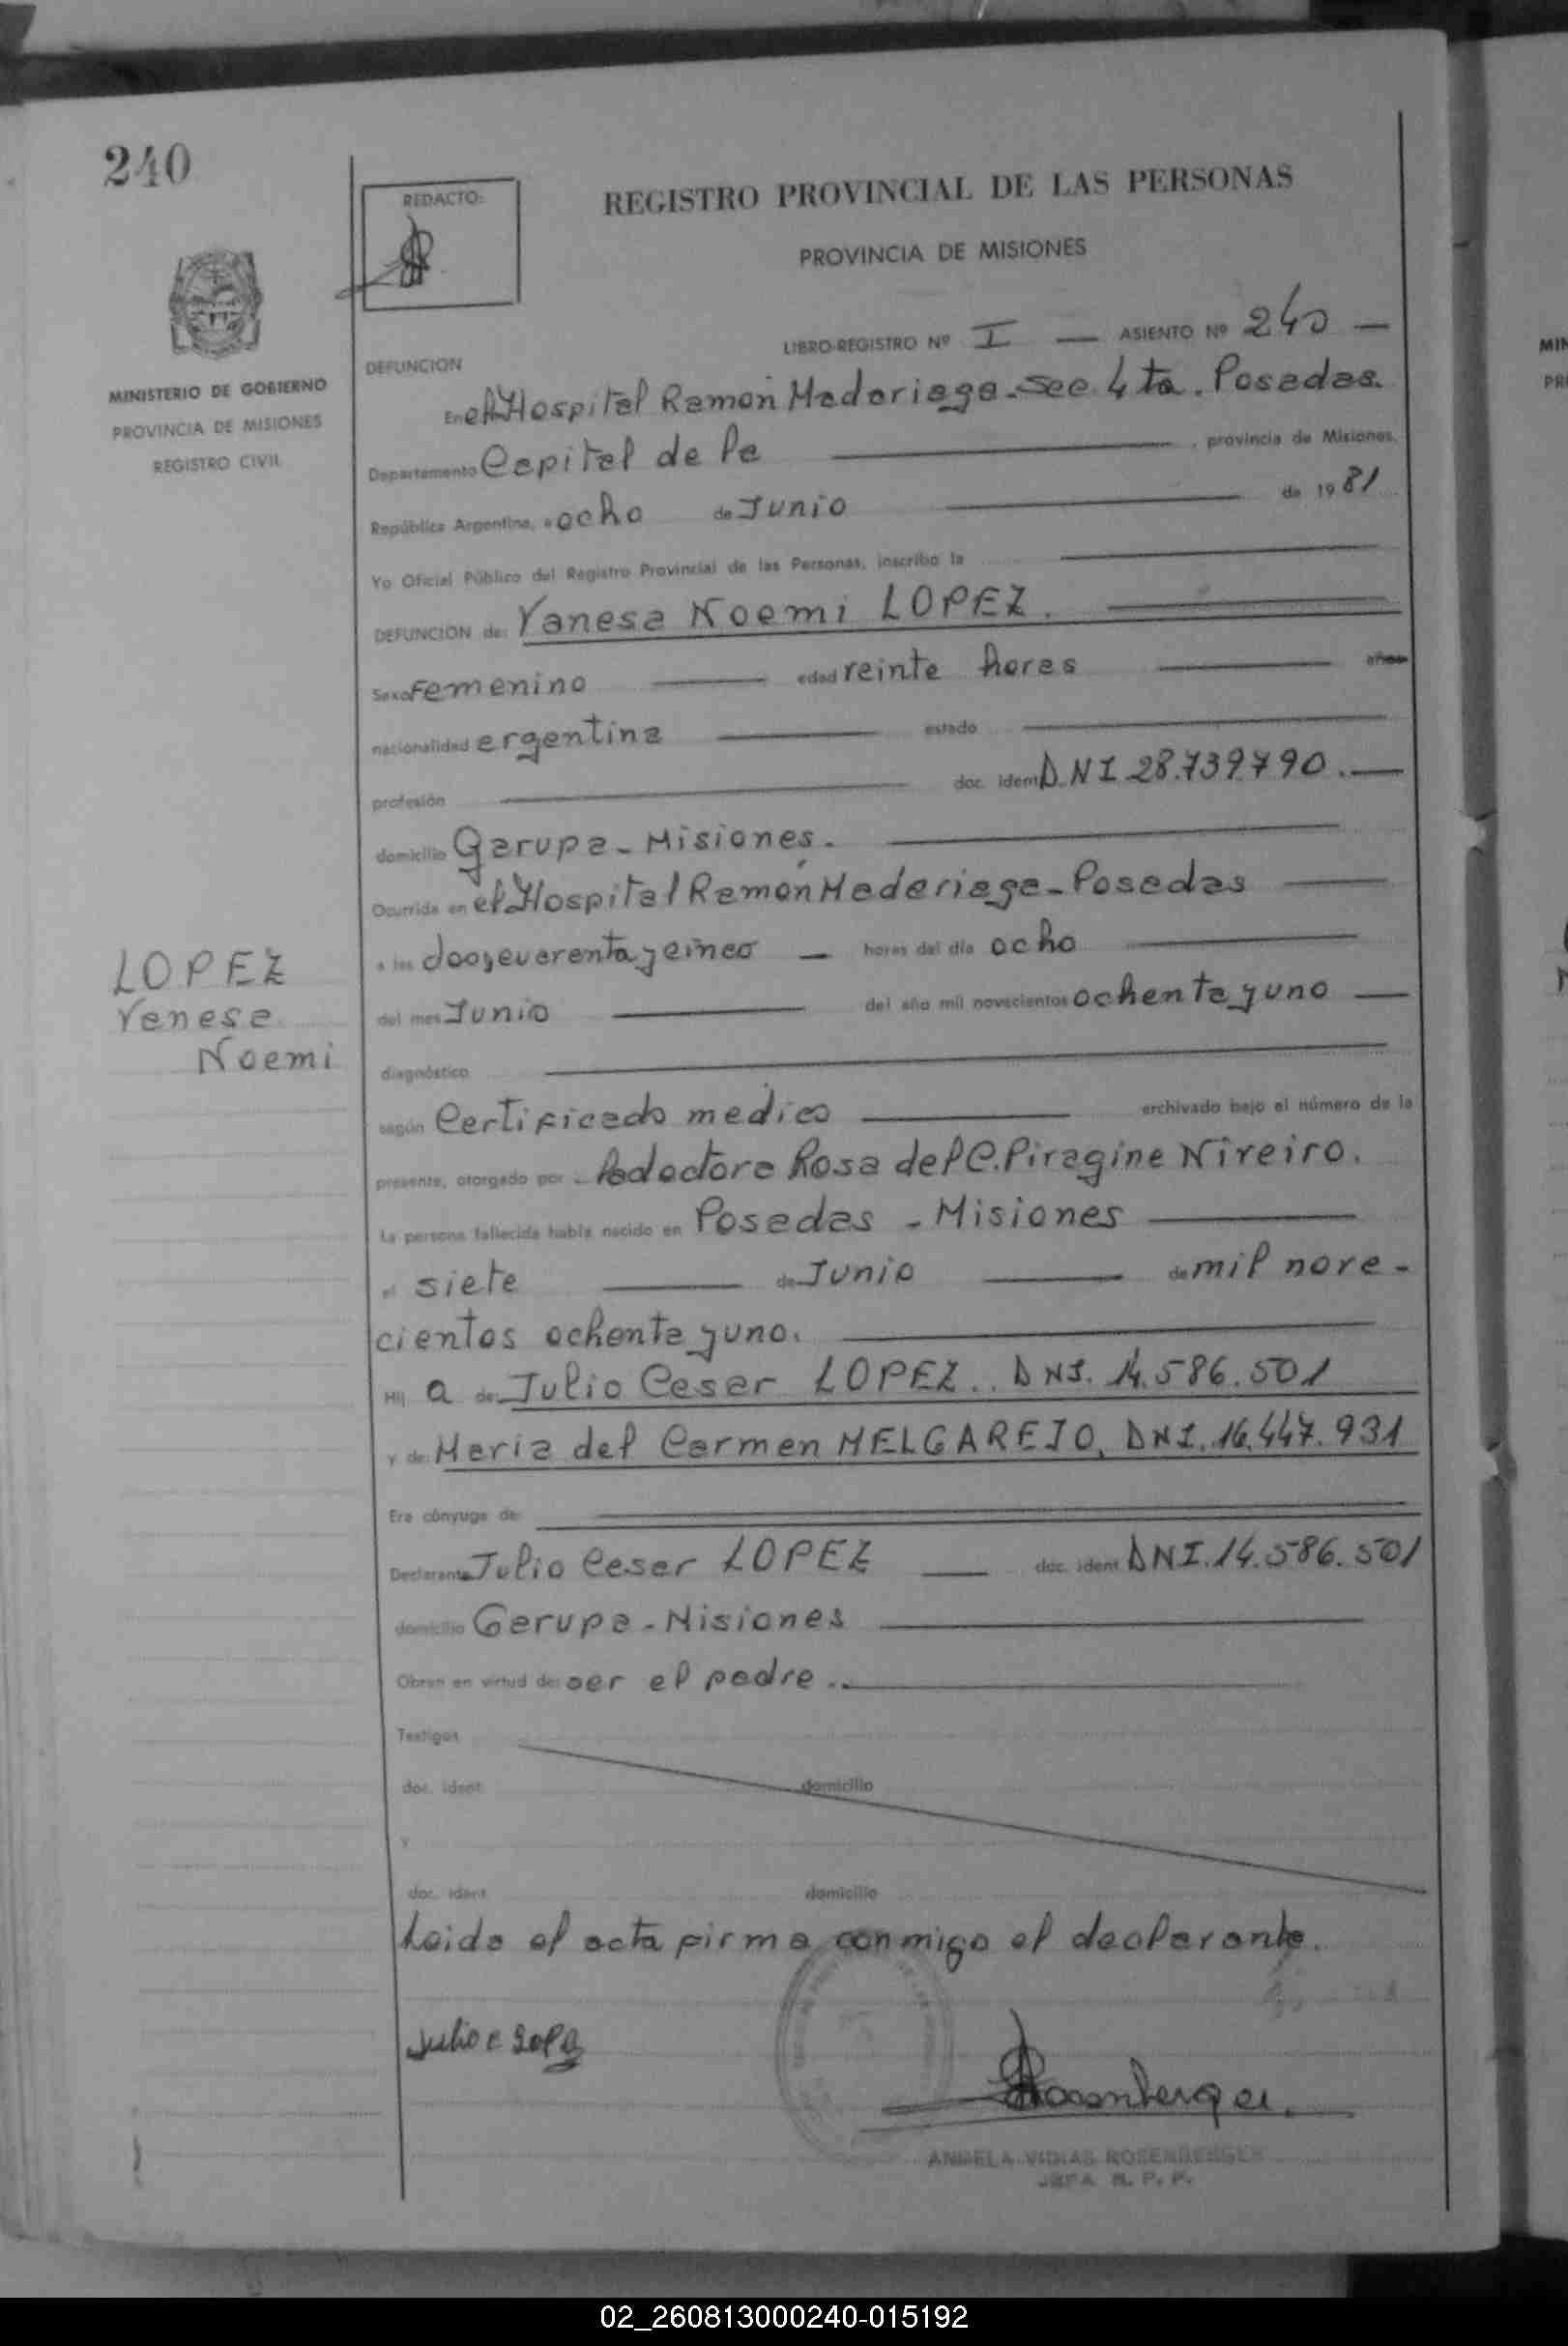 240
REDACTO:
REGISTRO PROVINCIAL DE LAS PERSONAS
PROVINCIA DE MISIONES
MINISTERIO DE GOBIERNO
PROVINCIA DE MISIONES
REGISTRO CIVIL
LIBRO-REGISTRO Nº I — ASIENTO Nº 240 —
DEFUNCION
En el Hospital Ramón Madariaga - Sec. 4ta. Posadas.
Departamento Capital de la , provincia de Misiones.
República Argentina, a ocho de Junio de 1981
Yo Oficial Público del Registro Provincial de las Personas, inscribo la
DEFUNCION de: Vanesa Noemi LOPEZ.
Sexo Femenino edad veinte horas años
nacionalidad argentina estado
profesión doc. ident DNI 28.739.790.
domicilio Garupa - Misiones.
Ocurrida en el Hospital Ramón Madariaga - Posadas
a las dos y cuarenta y cinco horas del día ocho
del mes Junio del año mil novecientos ochenta y uno
LOPEZ
Vanesa
Noemi
diagnóstico
según Certificado medico archivado bajo el número de la
presente, otorgado por la doctora Rosa del C. Piragine Niveiro.
La persona fallecida había nacido en Posadas - Misiones
el siete de Junio de mil nove-
cientos ochenta y uno.
Hij a de: Julio Cesar LOPEZ.. DNI. 14.586.501
y de: Maria del Carmen MELGAREJO, DNI. 16.447.931
Era cónyuge de:
Declarante Julio Cesar LOPEZ doc. ident DNI. 14.586.501
domicilio Garupa - Misiones
Obran en virtud de: ser el padre..
Testigos
doc. ident domicilio
y
doc. ident domicilio
Leida el acta firma conmigo el declarante.
Julio C Lopez
Rosenberger
ANGELA VIDIAS ROSENBERGER
JEFA R. P. P.
02_260813000240-015192